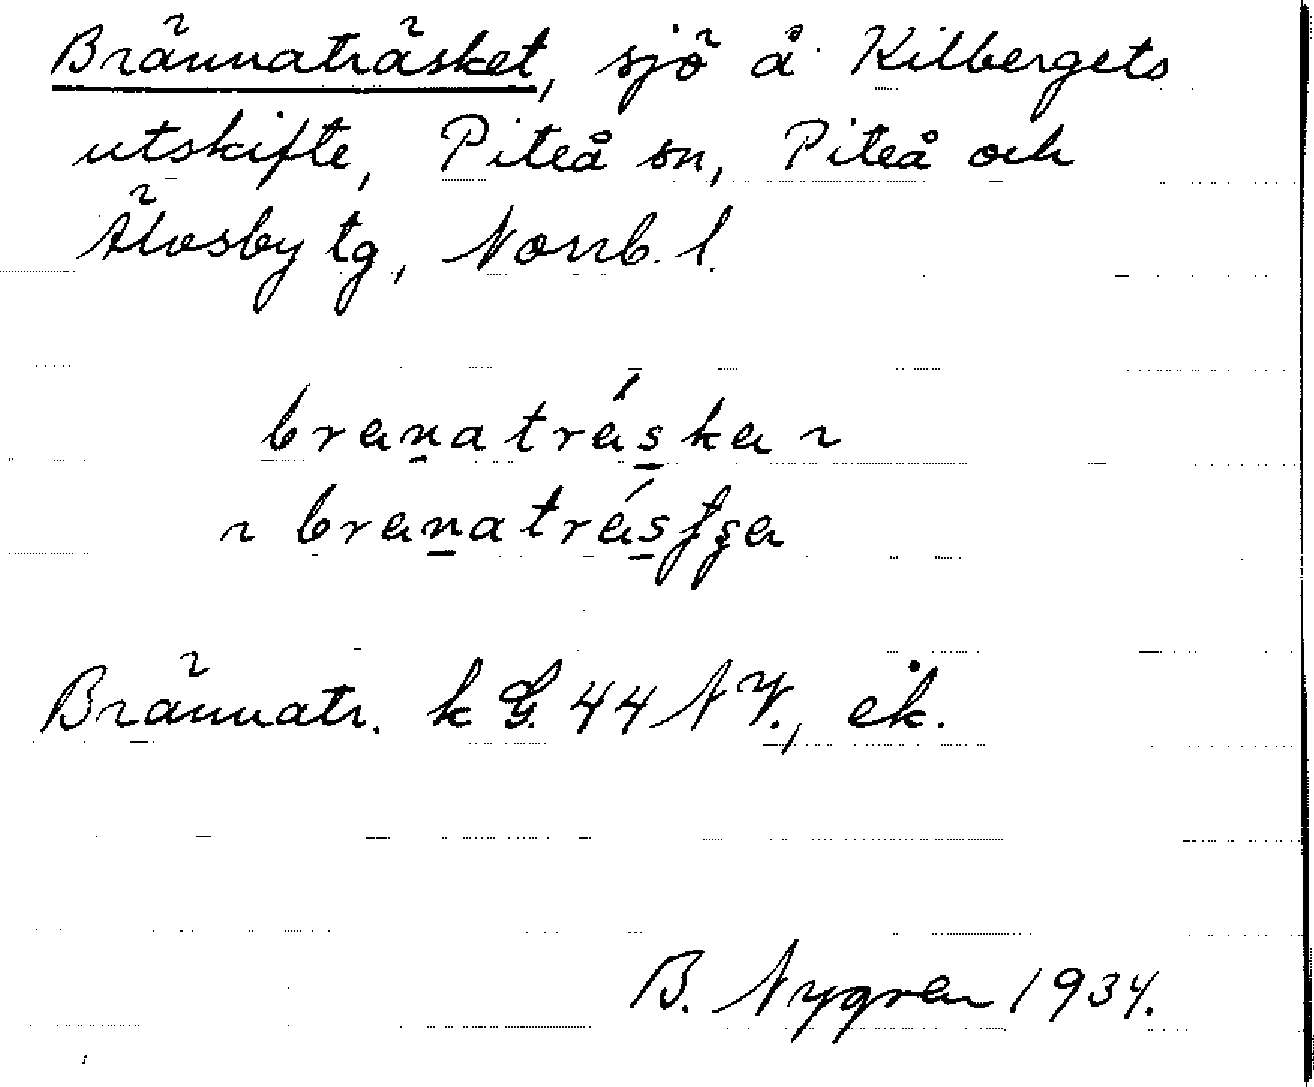 Brännaträsket, sjö å Kilbergets
utskifte, Piteå sn, Piteå och
Älvsby tg, Norrb. l.
branatráska ~
~ branatrásʃʂa
Brännatr. k G. 44 NV., ek.
B. Nygren 1934.